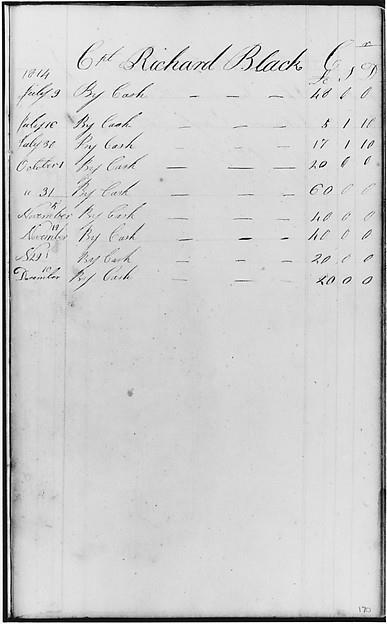 Cpt Richard Black Cr
1814 £ S D
July 9 By Cash — — — 40 0 0
July 16 By Cash — — 5 1 10
July 30 By Cash — — — 17 1 10
October 1 By Cash — — — 20 0 0
" 31 By Cash — — — 60 0 0
November By Cash — — — 40 0 0
November By Cash — — — 40 0 0
By Cash — — — 20 0 0
December 10 By Cash — — — 20 0 0
170